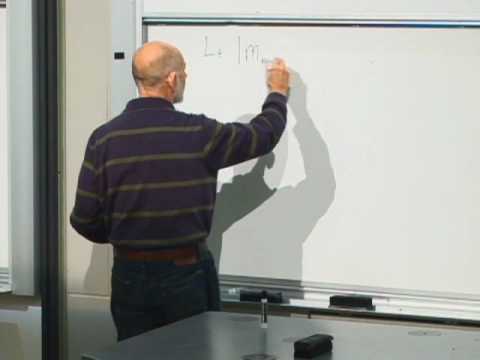 L+ |m